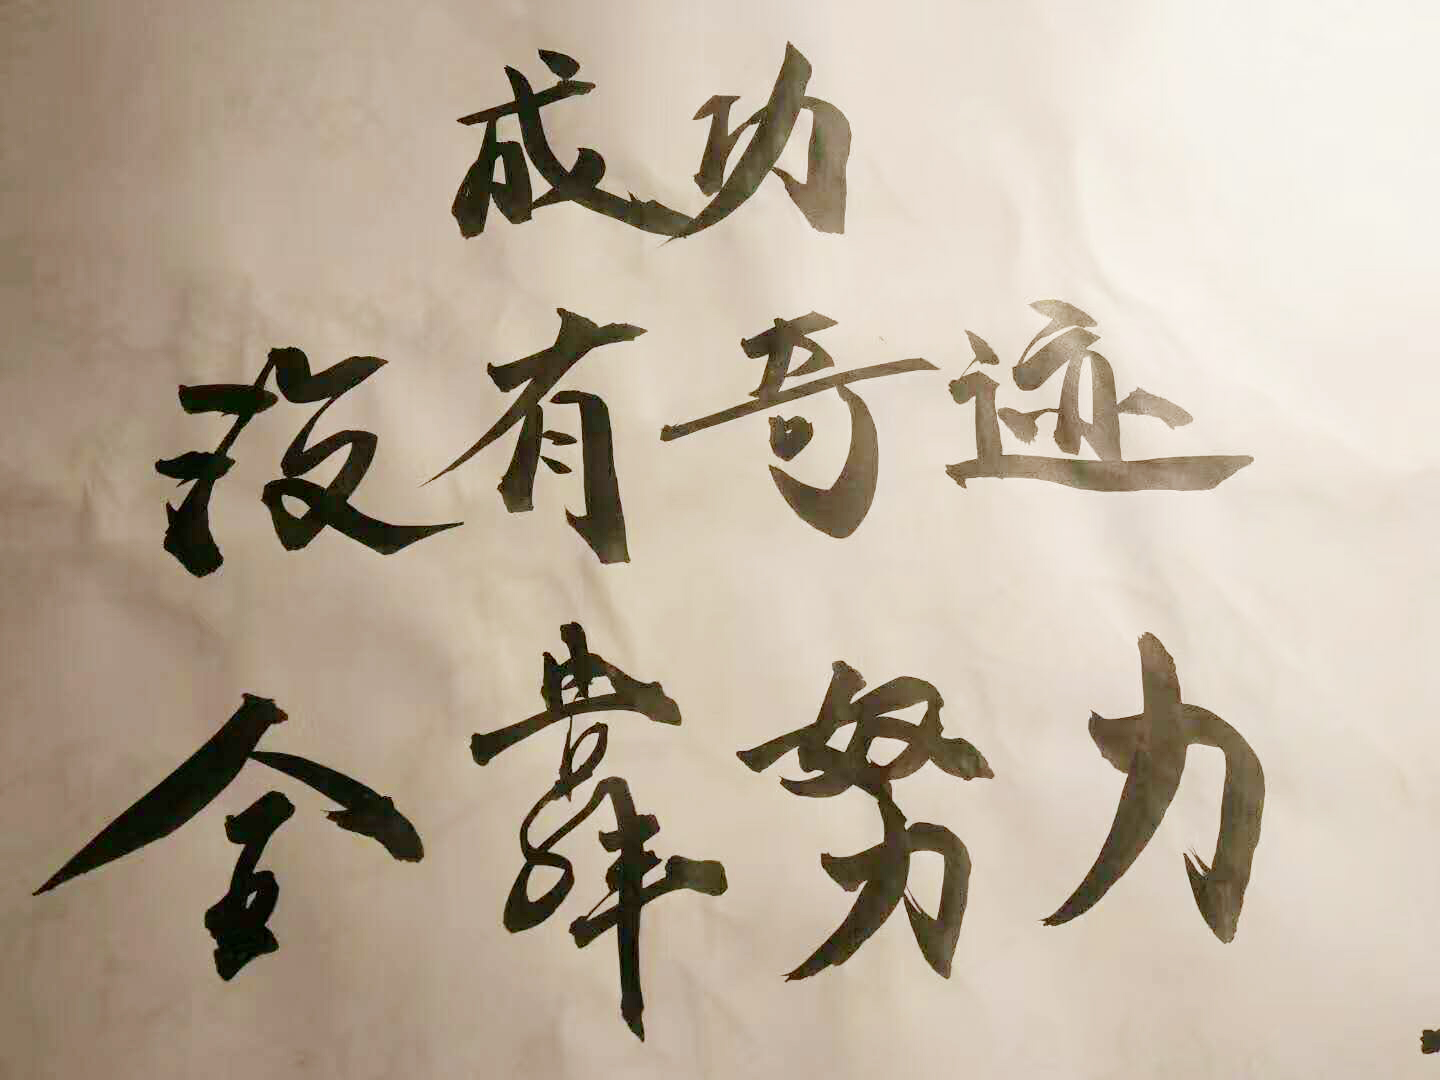 成功
没有奇迹
全靠努力